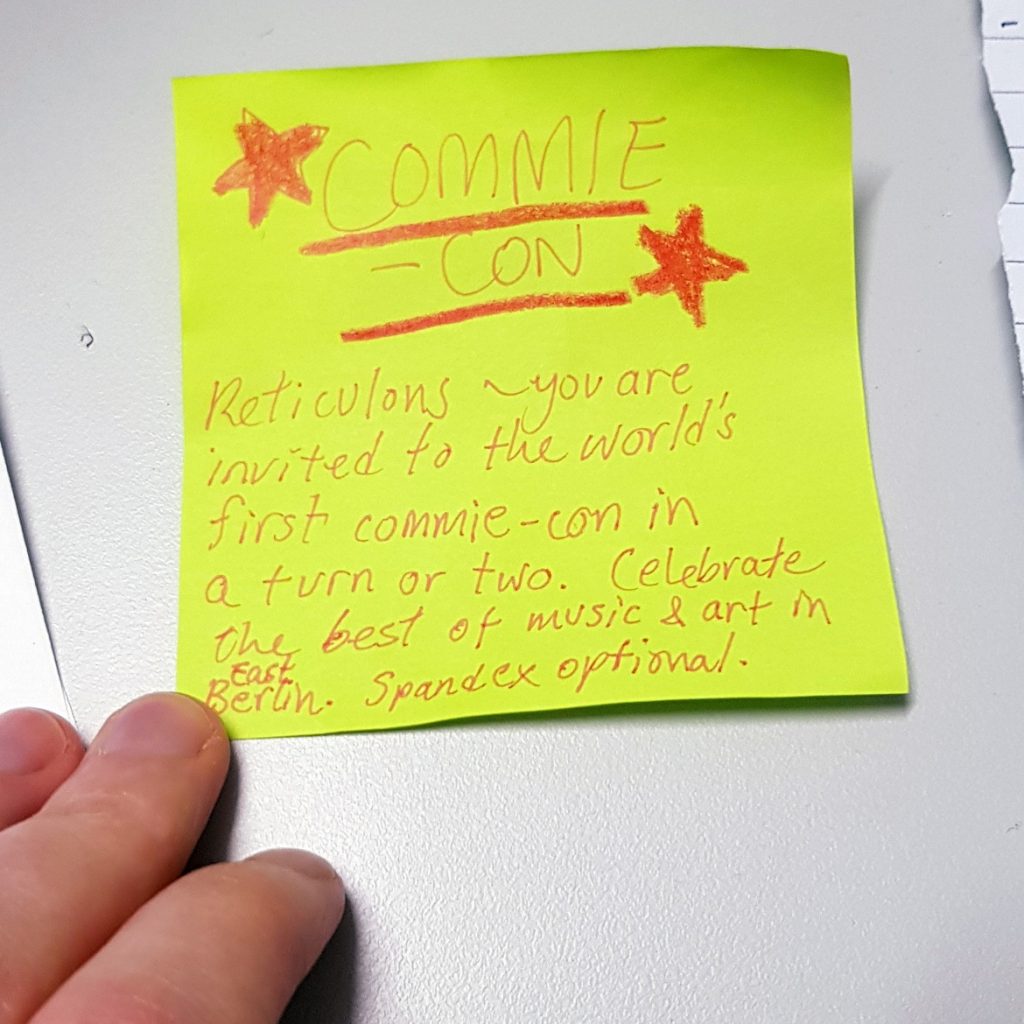 COMMIE
- CON
Reticulons ~ you are
invited to the world's
first commie-con in
a turn or two. Celebrate
the best of music & art in
East
Berlin. Spandex optional.